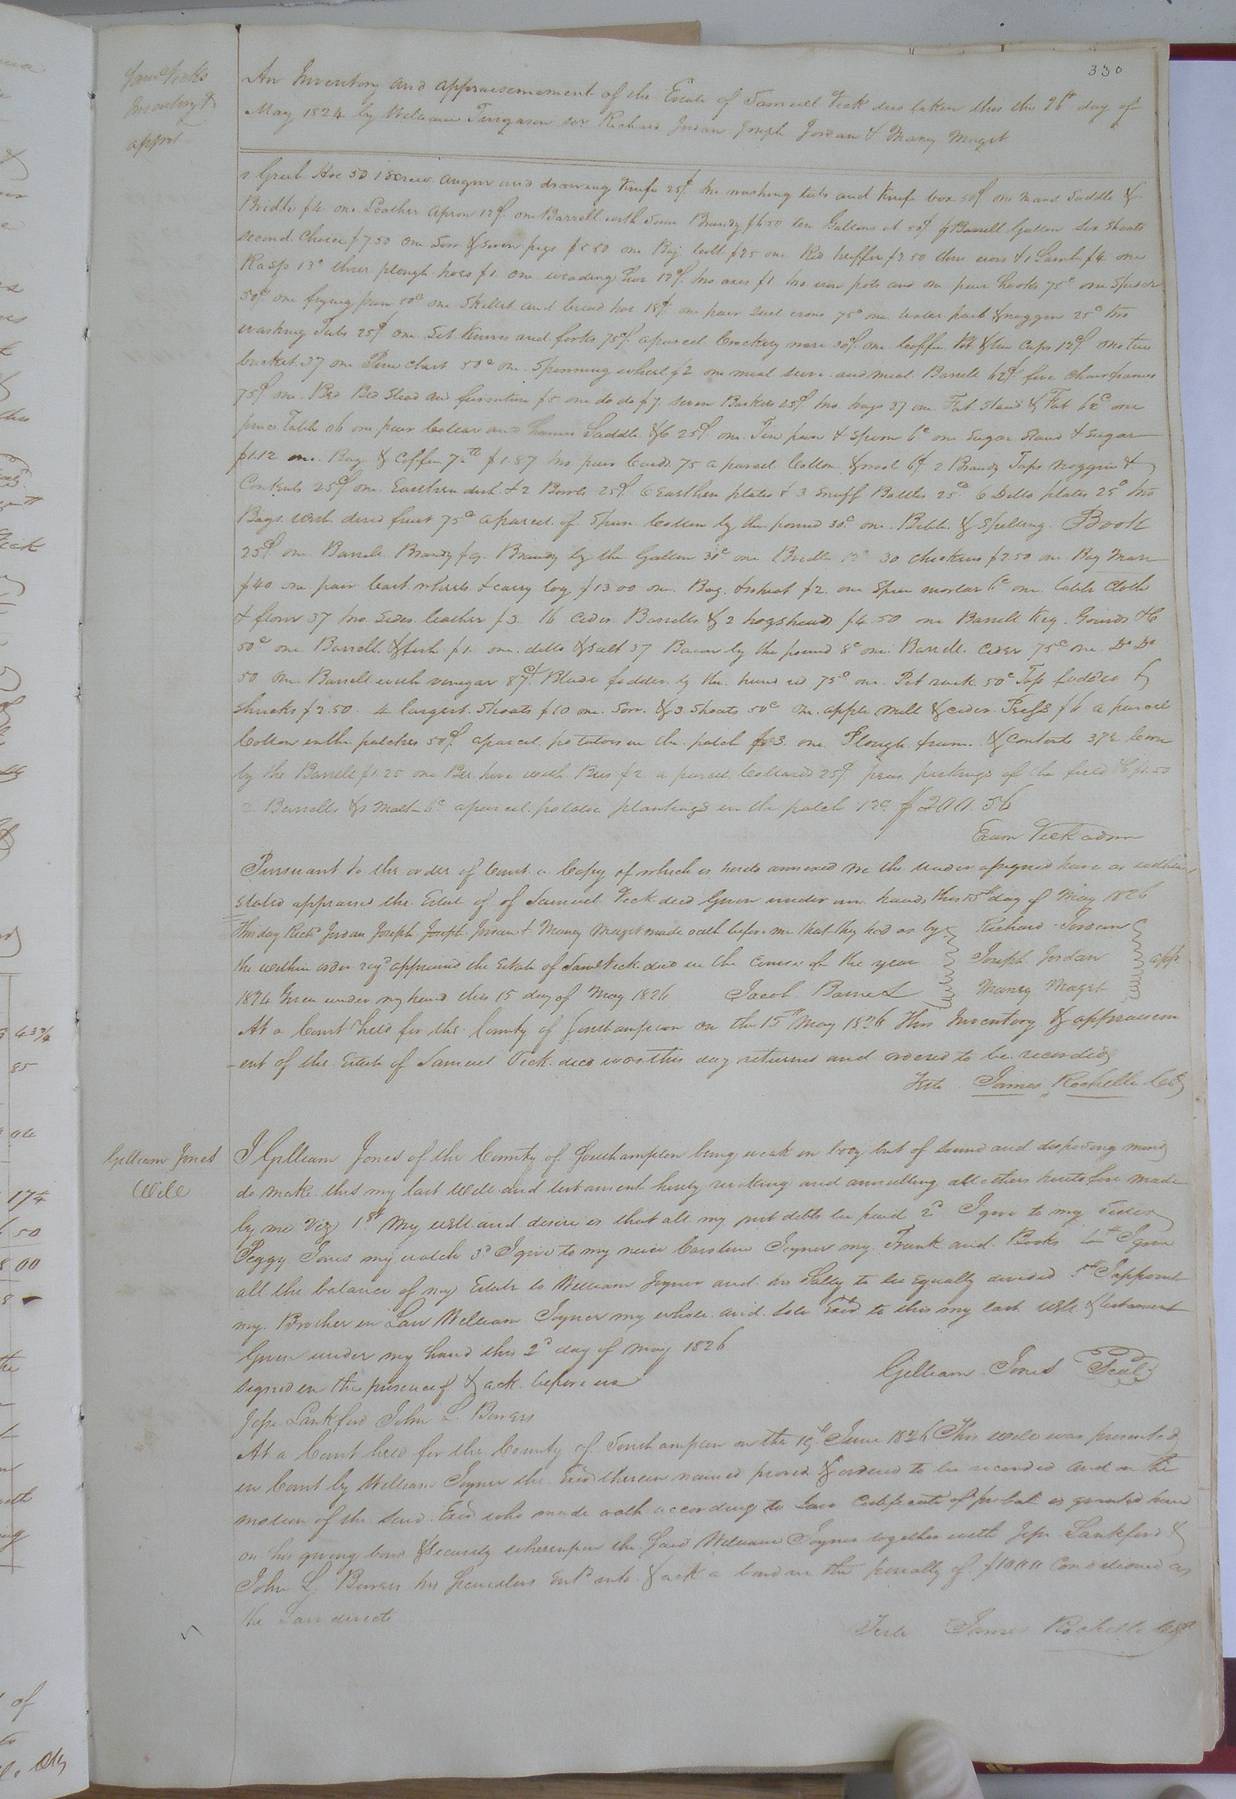 330
Saml Vicks
Inventory &
appmt
An Inventory and appraisemement of the Estate of Samuel Vick decd taken this the 26th day of
May 1824 by William Turgason Richard Jordan Joseph Jordan & Manry Magit
1 Grub Hoe 50 1 Screw augur and drawing knife 25¢ two washing tubs and knife box 50¢ one mans Saddle &
Bridle $4 one Leather apron 12¢ one Barrell with Some Brandy $6.50 ten Gallons at 50¢ Barrell Gallon Six Shoats
second Choice $7.50 one Sow & Seven pigs $5.50 one Bay Colt $25 one Red heiffer $2.50 three ews & 1 Lamb $4 one
Rasp 13c three plough hoes $1 one weeding hoe 12¢ two axes $1 two iron pots and one pair hooks 75c one Spider
50¢ one frying pan 50c one Skillet and broad hoe 18¢ one pair Sad irons 75c one water pail & noggin 25c two
washing Tubs 25¢ one Set knives and forks 75¢ a parcel Crockery ware 30¢ one Coffee Pot & ten Cups 12¢ one tin
bucket 37 one Pine Chest 50c one Spinning wheel $2 one meal sieve and meal Barrell 62¢ five Chair frames
75¢ one Bed Bed Stead and furniture $5 one do do $7 seven Baskets 25¢ two Jugs 37 one Fat Stand & Fat 62c one
pine Table 06 one pair Collar and Hames Saddle &C 25¢ one Tin pan & Spoon 6c one Sugar Stand & Sugar
$1.12 one Bag & Coffee $1.87 two pair Cards 75 a parcel Cotton & wool 6¢ 2 Brandy Taps noggin &
Contents 25¢ one Earthen dish & 2 Bowls 25¢ 6 Earthen plates & 3 Snuff Bottles 25c 6 Delto plates 25c two
Bags with dried fruit 75c a parcel of Spun Cotton by the pound 30c one Bible & Spelling Book
25¢ one Barrele Brandy $9 Brandy by the Gallon 30c one Bridle 13c 30 chickens $2.50 one Bay Mare
$40 one pair Cart wheels & carry log $13.00 one Bag & wheat $2 one Spice mortar 6c one table Cloth
& flour 37 two Sides leather $3 16 Cider Barrells & 2 hogsheads $4.50 one Barrell Keg Gourds &C
50c one Barrell & fish $1 one ditto & Salt 37 Bacon by the pound 8c one Barrell Cider 75c one Do Do
50 one Barrell with vinegar 87¢ Blade fodder by the hundred 75c one Pot rack 50c Top fodder &
Shucks $2.50 4 largest Shoats $10 one Sow & 3 Shoats 50c one apple Mill & Cider Press $6 a parcel
Cotton in the patches 50¢ a parcel potatoes in the patch $3 one Plough frame & Contents 37½ Corn
by the Barrell $1.25 one Bee hive with Bees $2 a parcel Collards 25¢ peas pasturage of the field &C $1.50
2 Barrells & 1 6c a parcel potatoe plantings in the patch 12c $200.56
Exum Vick admr
Pursuant to the order of Court a Copy of which is hereto annexed we the under assigned have as within
stated appraised the Estate of of Samuel Vick decd Given under our hands this 15th day of May 1826
This day Richd Jordan Joseph Joseph Jordan & Manry Magit made oath before me that they had as by
the within order reqd appraised the Estate of Saml Vick decd in the Course of the year
1824 Given under my hand this 15 day of May 1826 Jacob Barnes
Richard Jordan
Joseph Jordan
Manry Magit
appr
At a Court held for the County of Southampton on the 15th May 1826 This Inventory & appraisem
-ent of the Estate of Samuel Vick decd was this day returned and ordered to be recorded
Teste James Rochelle Clk
Gilliam Jones
Will
I Gilliam Jones of the County of Southampton being weak in body but of sound and disposing mind
do make this my last Will and testament hereby revoking and annulling all others heretofore made
by me Viz 1st My will and desire is that all my just debts be paid 2d I give to my Sister
Peggy Jones my watch 3d I give to my neice Caroline Joyner my Trunk and Books 4th I give
all the balance of my Estate to William Joyner and his Sally to be Equally divided 5th I appoint
my Brother in Law William Joyner my whole and Sole Exor to this my last Will & testament
Given under my hand this 2d day of May 1826
Signed in the presence of & ack before us
Gilliam Jones Seal
Jesse Lankford John L. Bowers
At a Court held for the County of Southampton on the 19th June 1826 This will was presented
in Court by William Joyner the Exor therein named proved & ordered to be recorded and on the
motion of the Said Exor who made oath according to Law Certificate of probat is granted him
on his giving bond & Security whereupon the Said William Joyner together with Jesse Lankford &
John L. Bowers his Securities Entd into & ack a bond in the penalty of $1000 Conditioned as
the Law directs
Teste James Rochelle Clk